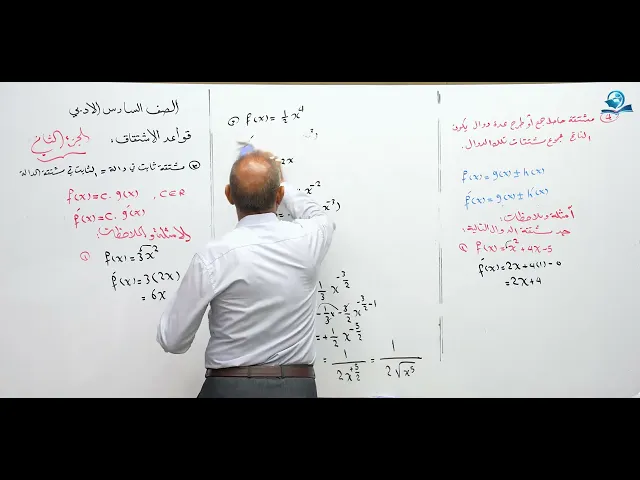 الصف السادس الادبي
قواعد الاشتقاق:
الجزء الثاني
③ مشتقة ثابت في دالة = الثابت في مشتقة الدالة
f(x) = C. g(x) , C∈R
f́(x) = C. ǵ(x)
الامثلة والملاحظات:
① f(x) = 3x²
f́(x) = 3(2x)
= 6x
② f(x) = ½ x⁴
2x
x⁻²
x⁻³)
⅓ x^{-3/2}
-⅓ x - 3/2 x^{-3/2 - 1}
= +½ x^{-5/2}
= 1 / 2x^{+5/2} = 1 / 2√x⁵
④ مشتقة حاصل جمع أو طرح عدة دوال يكون
الناتج مجموع مشتقات تلك الدوال.
f(x) = g(x) ± h(x)
f́(x) = ǵ(x) ± h́(x)
أمثلة وملاحظات:
جد مشتقة الدوال التالية:
① f(x) = x² + 4x - 5
f́(x) = 2x + 4(1) - 0
= 2x + 4